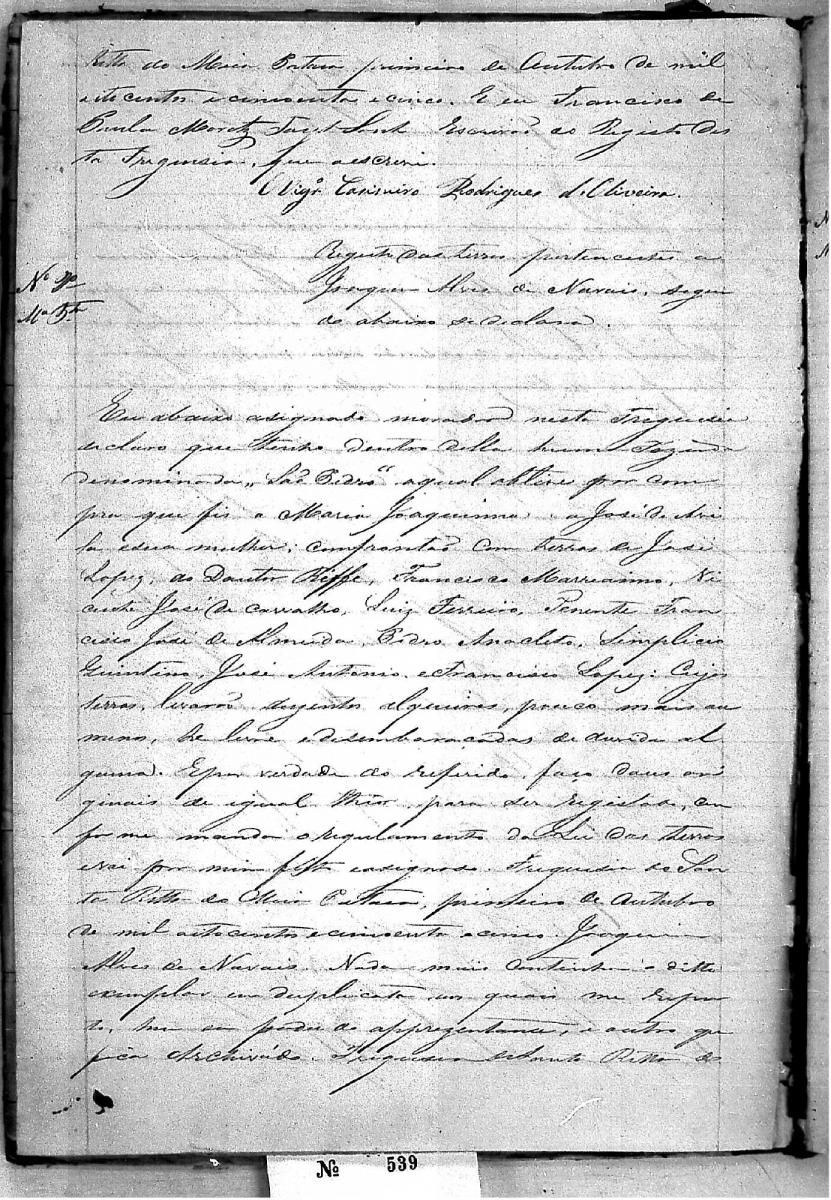 Ritta do Meia Pataca primeiro de Outubro de mil
oitocentos e cincoenta e cinco. E eu Francisco de
Paula Escrivaõ do Registo des
ta Freguesia, que o escrevi.
O Vigr.º Casimiro Rodrigues d'Oliveira.
Registo das terras pertencentes a
Joaquim Alves de Navais, segun
do abaixo se declara.
Nº
Mº 5
Eu abaixo asignado morador nesta Freguesia
declaro que tenho dentro della huma Fazenda
denominada "Saõ Pedro" a qual obtive por com
pra que fis a Maria Joaquinna, a José de Avi
la e sua mulher; comfrontaõ com terras de José
Lopez, do Doutor Francisco Marrianno, Vi
cente José de Carvalho, Luiz Ferreira, Tenente Fran
cisco José de Almeida, Pedro Anacleto, Simplicio
Quintino, José Antonio, e Francisco Lopez: Cujas
terras, levaraõ duzentos alqueires, pouco mais au
menos, he livre e desembaraçadas de duvida al
guma. E por verdade do referido, faço dous ori
ginais de igual thior para ser registado, con
forme manda o regulamento da Lei das terras
e vai por mim feito e asignado. Freguesia de San
ta Ritta do Meia Pataca, primeiro de Outubro
de mil oitocentos e cincoenta e cinco. Joaquim
Alves de Navais. Nada mais continha o ditto
exemplar em duplicata aos quais me repor
to, hum em poder do appresentante, e outro que
fica Archivado. Freguesia de Santa Ritta do
Nº 539